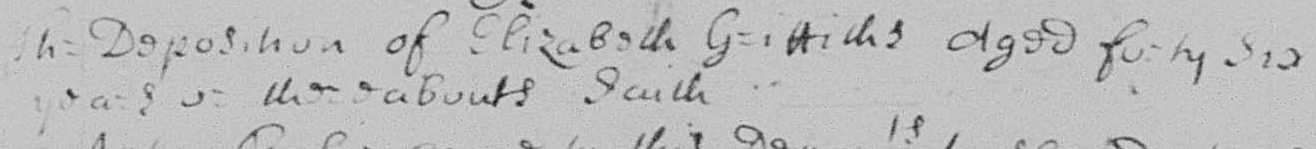 The Deposition of Elizabeth Griffiths aged forty six
years or thereabouts Saith
this